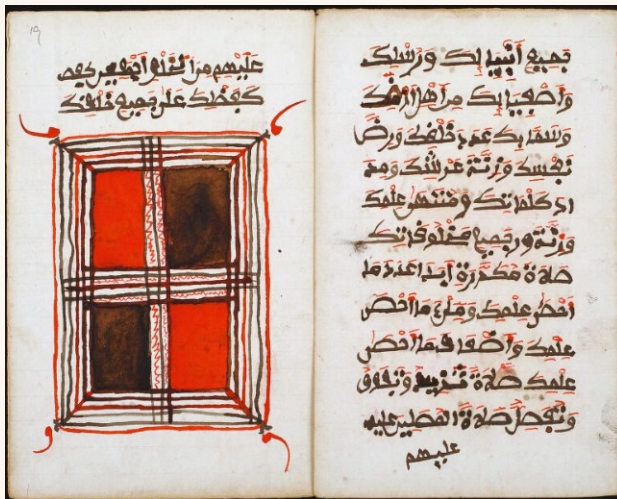 جميع أنبيائك ورسلك
وأصفيائك من أهل أرضك
وسمائك عدد خلقك ورض
نفسك وزنة عرشك ومد
اد كلماتك ومنتهى علمك
وزنة جميع مخلوقاتك
صلاة مكررة أبدا عدد ما
أحصى علمك وملء ما أحصى
علمك وأضعاف ما أحصى
علمك صلاة تزيد وتفوق
وتفضل صلاة المصلين عليه
عليهم
19
عليهم من الخلق أجمعين كفض
كفضلك على جميع خلقك